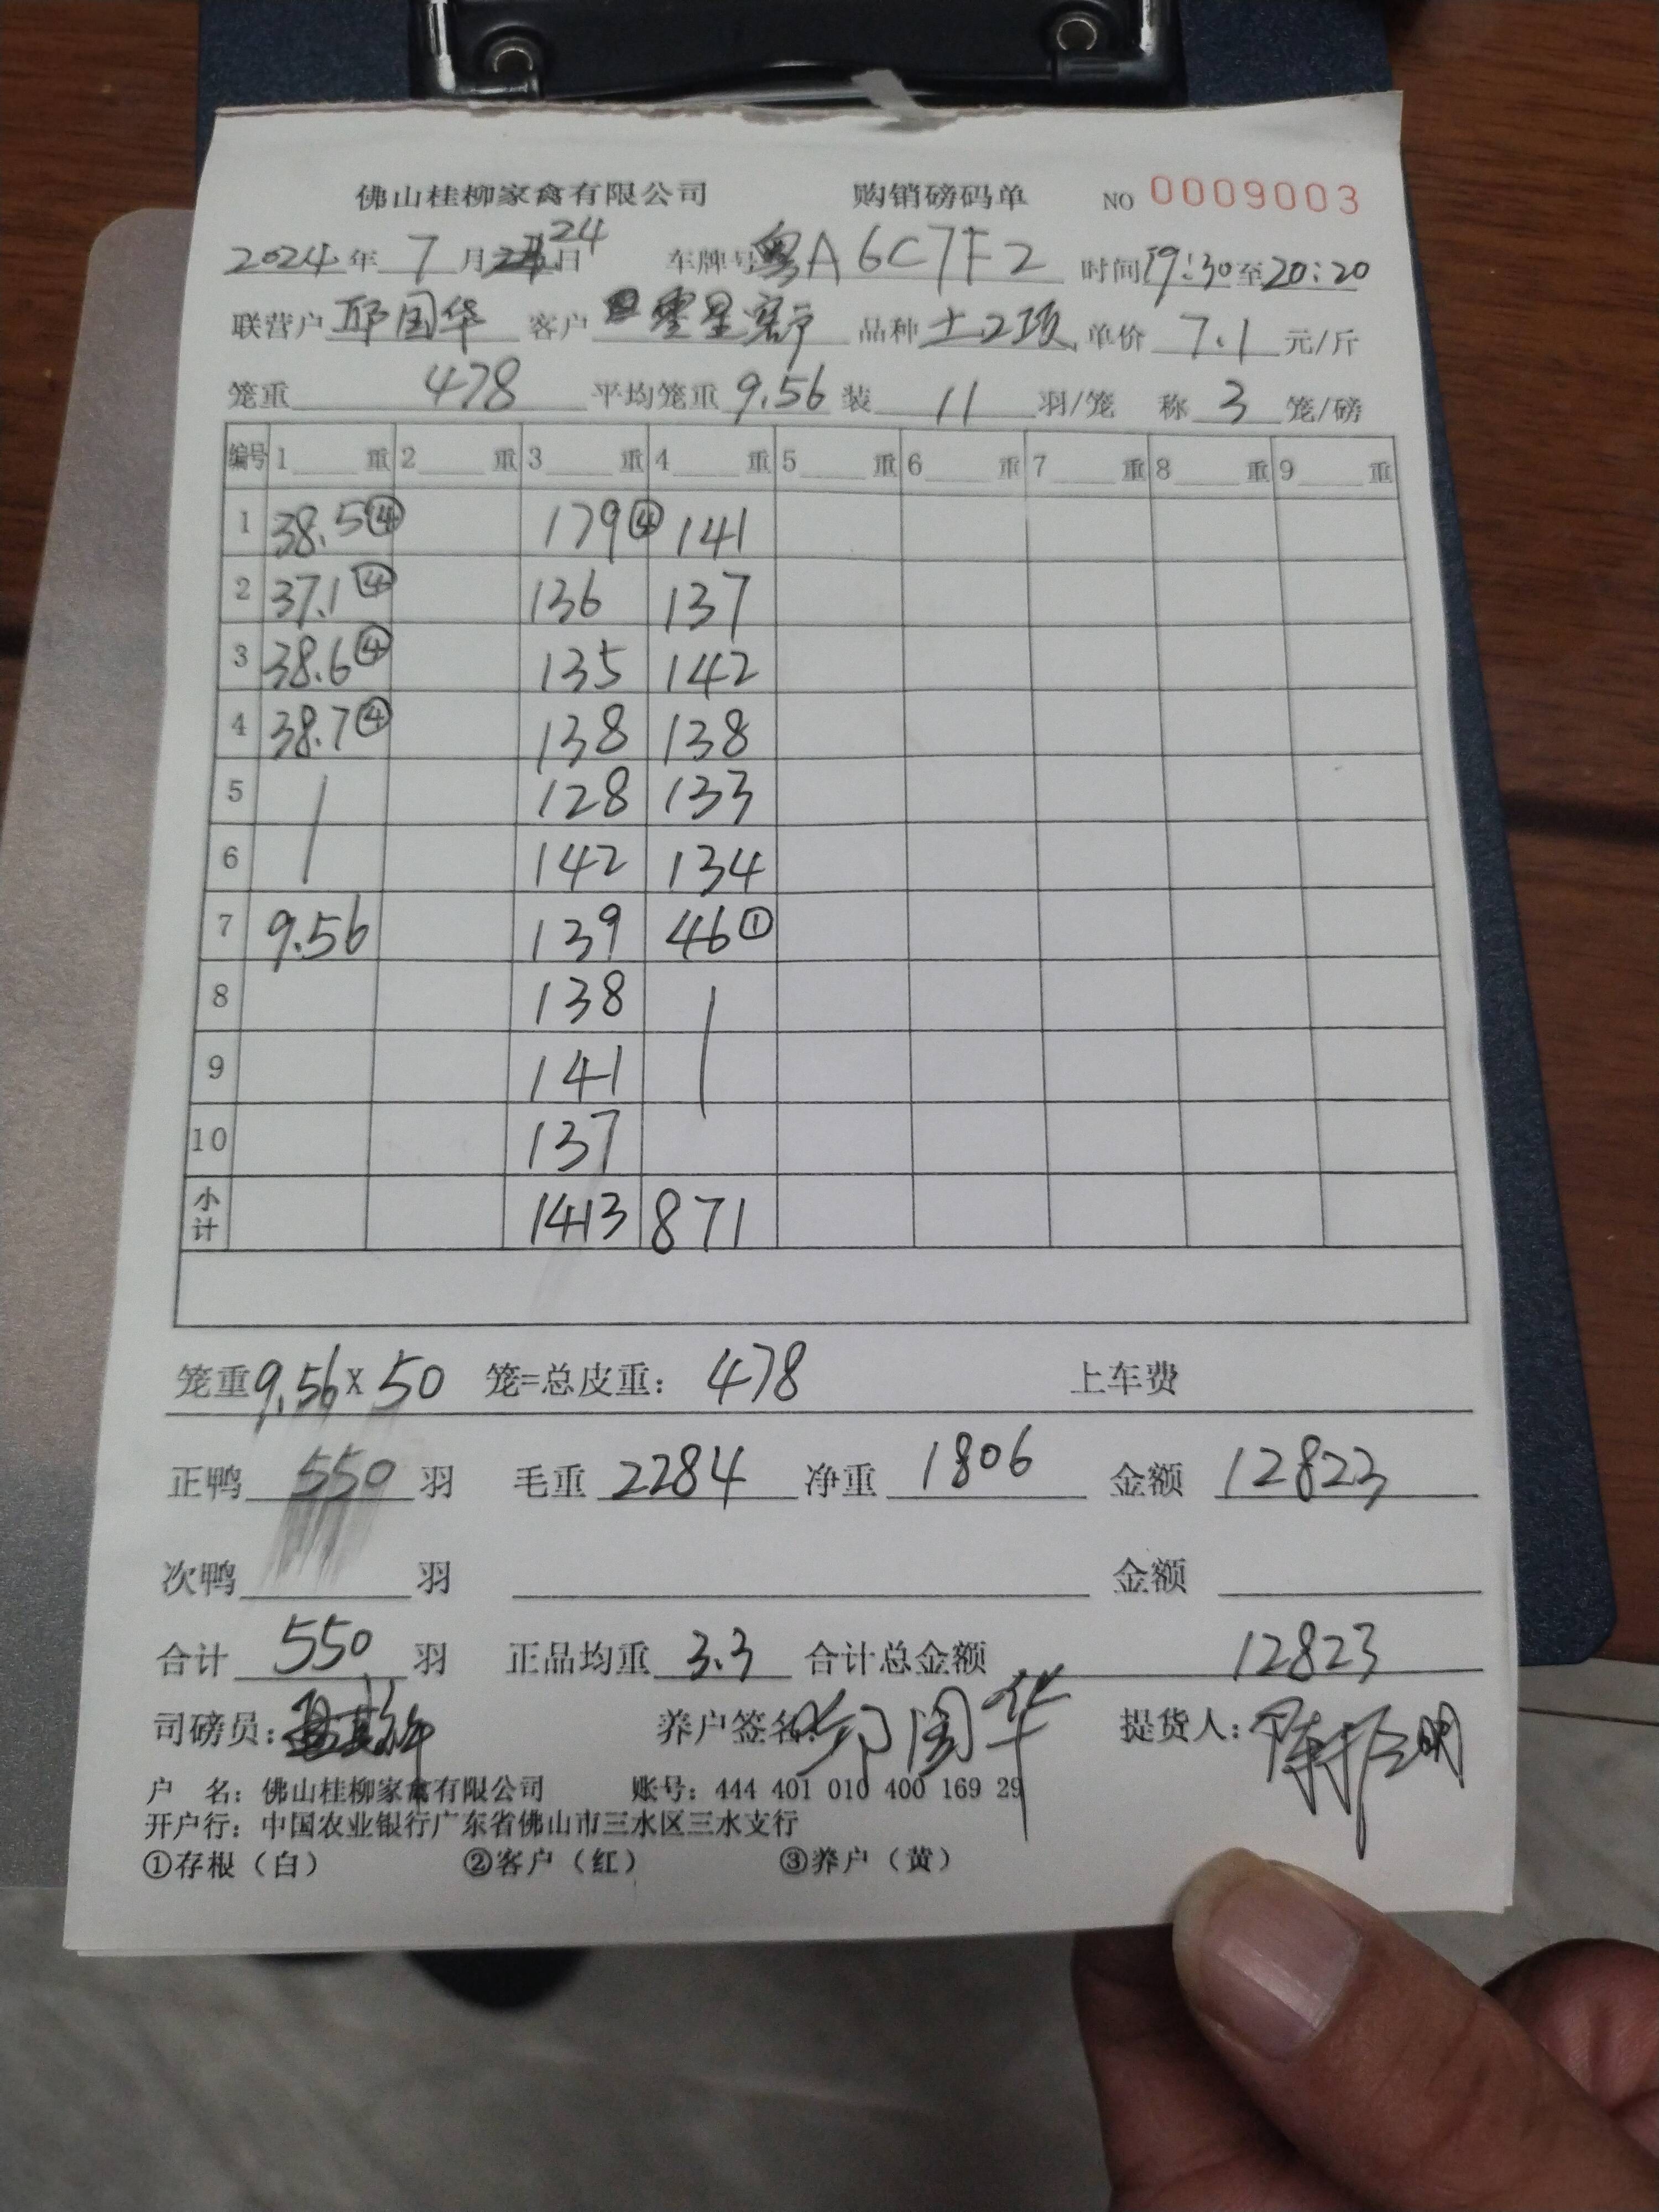 佛山桂柳家禽有限公司 购销磅码单 NO 0009003
2024年 7月 24日 车牌号 粤A6C7F2 时间19:30至20:20
联营户 邱国华 客户 零星客户 品种 土2项 单价 7.1 元/斤
笼重 478 平均笼重 9.56 装 11 羽/笼 称 3 笼/磅
编号 1 重 2 重 3 重 4 重 5 重 6 重 7 重 8 重 9 重
1 38.5④ 179④ 141
2 37.1④ 136 137
3 38.6④ 135 142
4 38.7④ 138 138
5 128 133
6 142 134
7 9.56 139 46①
8 138
9 141
10 137
小计 1413 871
笼重9.56X50 笼=总皮重: 478 上车费
正鸭 550 羽 毛重 2284 净重 1806 金额 12823
次鸭 羽 金额
合计 550 羽 正品均重 3.3 合计总金额 12823
司磅员: 养户签名: 邱国华 提货人:
户 名: 佛山桂柳家禽有限公司 账号: 444 401 010 400 169 29
开户行: 中国农业银行广东省佛山市三水区三水支行
①存根（白） ②客户（红） ③养户（黄）